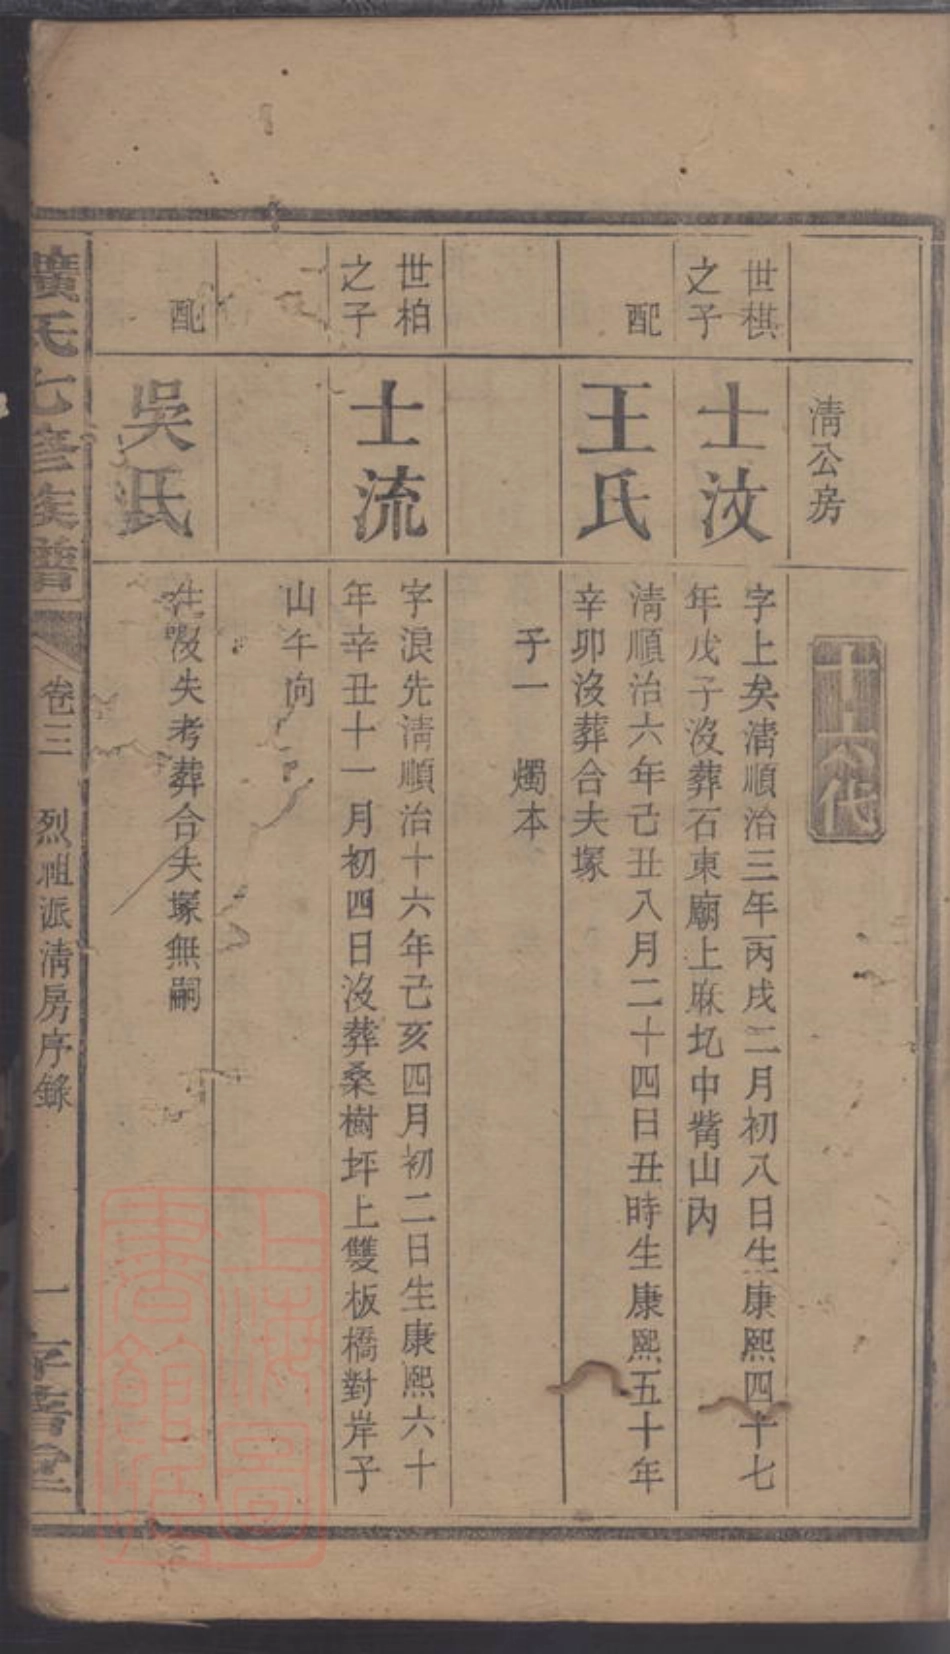 清公房
十六代
世棋
之子
士汶
字上矣清順治三年丙戌二月初八日生康熙四十七
年戊子沒葬石東廟上麻圠中嘴山內
配
王氏
清順治六年己丑八月二十四日丑時生康熙五十年
辛卯沒葬合夫塚
子一 燭本
世柏
之子
士流
字浪先清順治十六年己亥四月初二日生康熙六十
年辛丑十一月初四日沒葬桑樹坪上雙板橋對岸子
山午向
配
吳氏
生歿失考葬合夫塚無嗣
氏七修族譜
卷三
烈祖派清房序錄
一
上海圖
書館藏